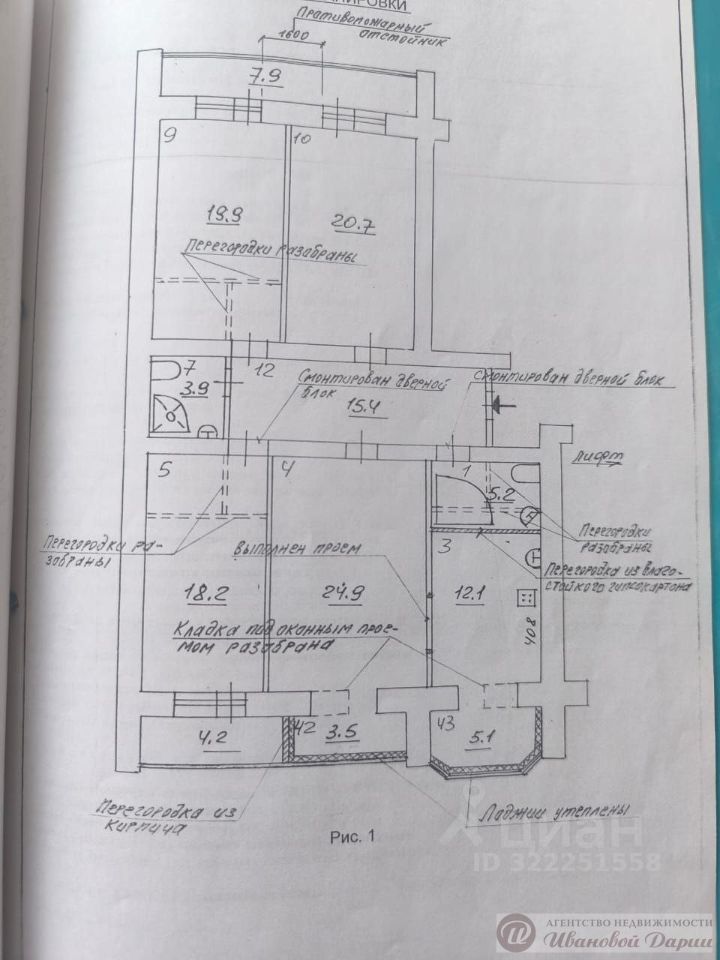 Противопожарный
отстойник
1600
7.9
9
10
19.9
20.7
Перегородки разобраны
7
3.9
12
Смонтирован дверной
блок
Смонтирован дверной блок
15.4
лифт
5
4
1
5.2
Перегородки ра-
зобраны
выполнен проем
3
Перегородки
разобраны
Перегородка из влаго-
стойкого гипсокартона
18.2
24.9
12.1
408
Кладка под оконным прое-
мом разобрана
4.2
42
3.5
43
5.1
Перегородка из
кирпича
Лоджии утеплены
Рис. 1
циан
ID 322251558
АГЕНТСТВО НЕДВИЖИМОСТИ
Ивановой Дарии